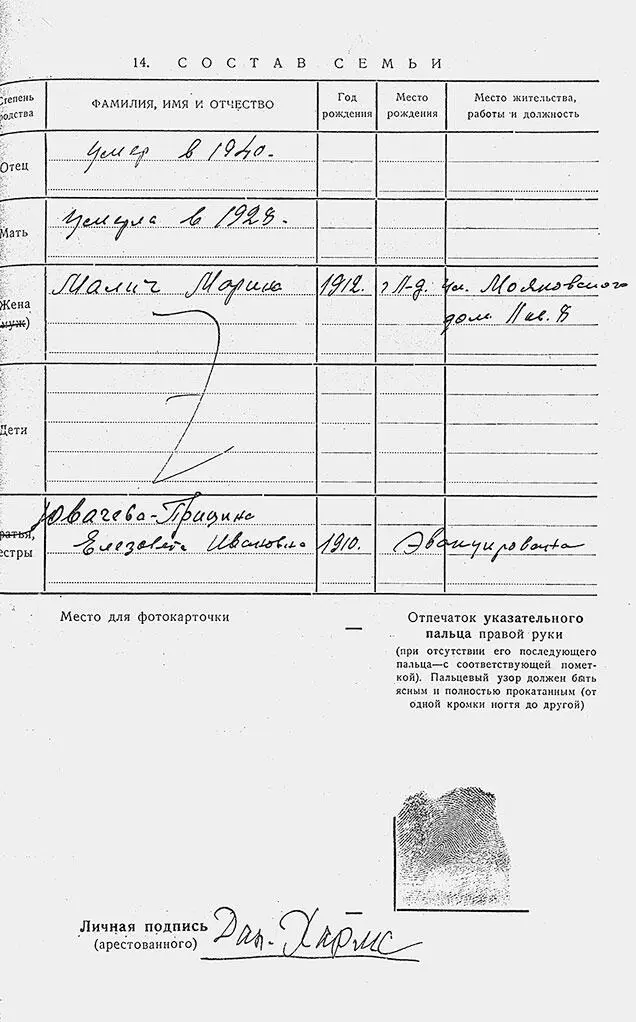 14. СОСТАВ СЕМЬИ
Степень родства
ФАМИЛИЯ, ИМЯ И ОТЧЕСТВО
Год рождения
Место рождения
Место жительства, работы и должность
Отец
умер в 1940.
Мать
Умерла в 1928.
Жена (муж)
Малич Марина 1912. г Л-д. ул. Маяковского
дом 11 кв. 8
Дети
ратья, естры
Ювачева-Грицина
Елезовета Ивановна 1910. Эвакуирована
Место для фотокарточки
Отпечаток указательного
пальца правой руки
(при отсутствии его последующего
пальца—с соответствующей помет-
кой). Пальцевый узор должен быть
ясным и полностью прокатанным (от
одной кромки ногтя до другой)
Личная подпись
(арестованного)
Дан. Хармс